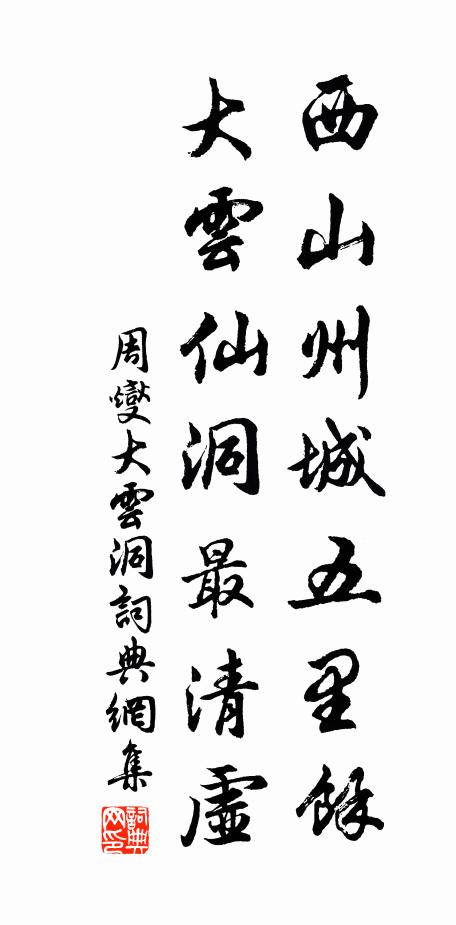 西山州城五里餘
大雲仙洞最清虛
周燮大雲洞詞典網集
詞典网印